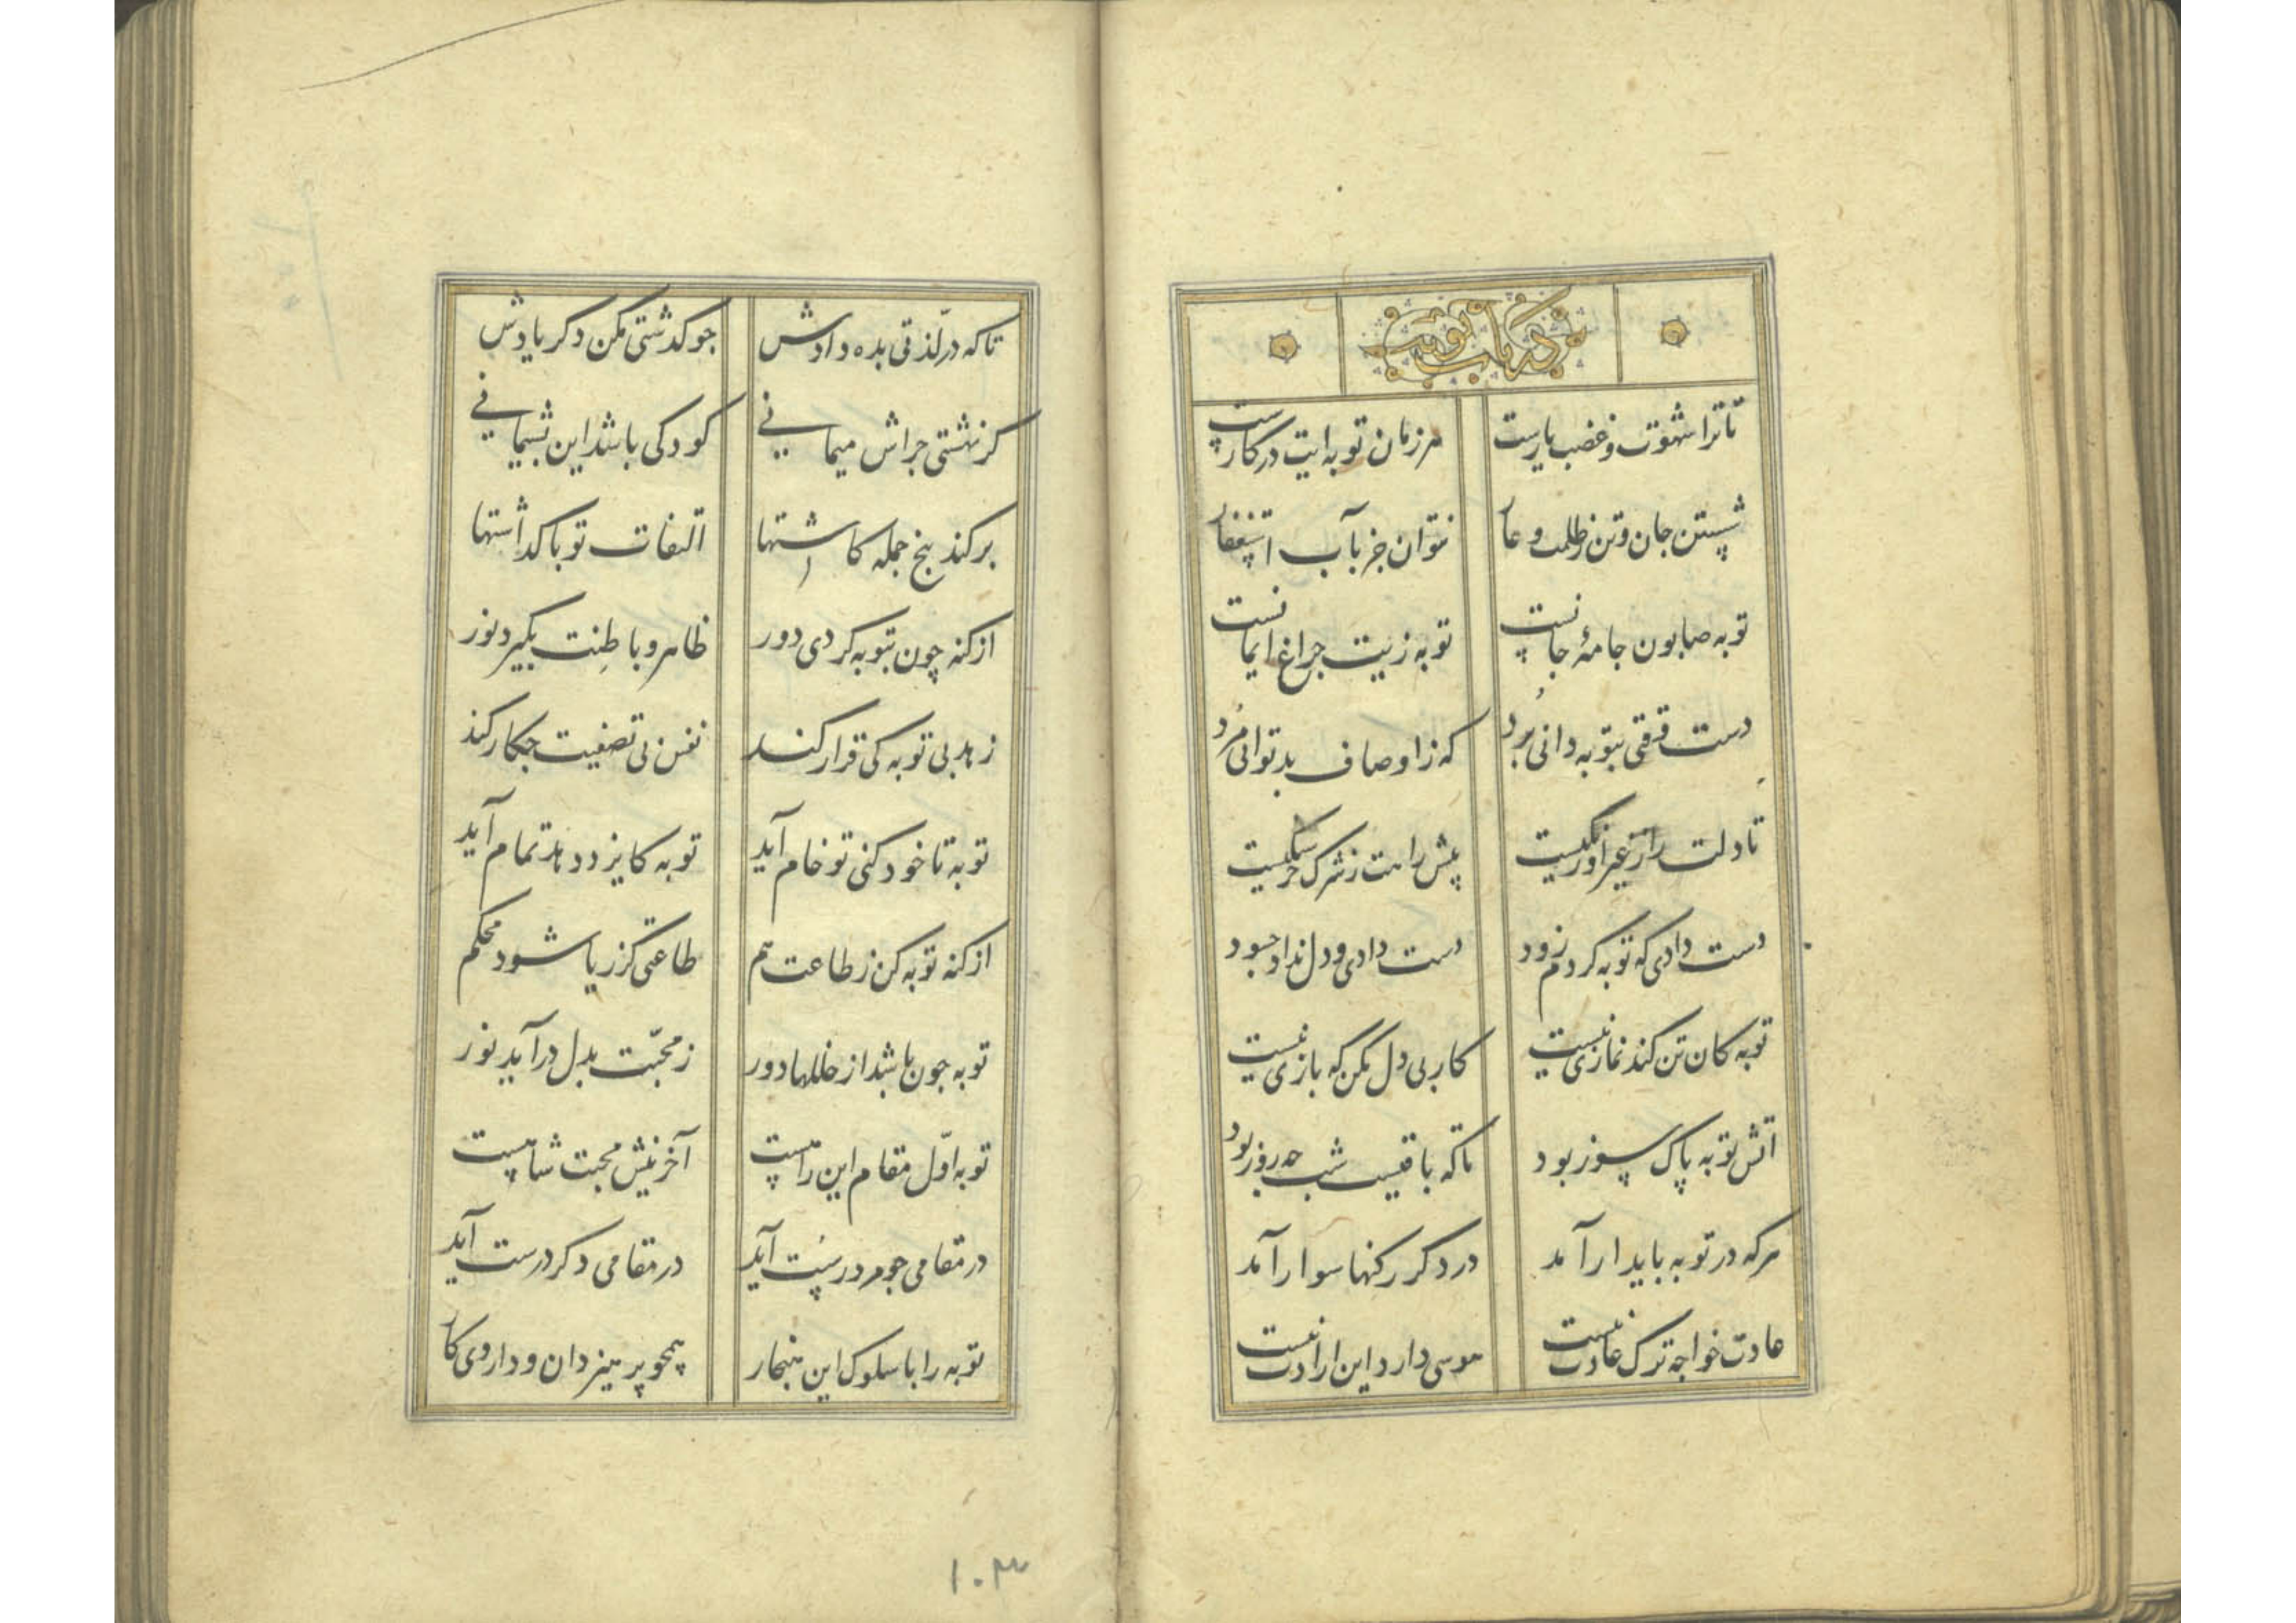 در باب توبت
تا ترا شهوت و غضب یارست هر زمان توبه ایت در کارست
شستن جان و تن ز ظلمت و عار نتوان جز بآب استغفار
توبه صابون جامهٔ جانست توبه زیت چراغ ایمانست
دست وقتی بتوبه دانی برد که ز اوصاف بد توانی مرد
تا دلت را ز غیر او رنگیست پیش راهت ز شرک خرسنگیست
دست دادی که توبه کردم زود دست دادی و دل نداد چسود
توبه کان تن کند نمازی نیست کار بی دل مکن که بازی نیست
آتش توبه پاک سوز بود تا که باقیست شب چه روز بود
هرکه در توبه بایدار آمد در دکر رکنها سوار آمد
عادت خواجه ترک عادت نیست هوسی دارد این ارادت نیست
تا که در لذتی بده دادش جو کدشتی مکن دکر یادش
کر بهشتی جراش میمانی کودکی باشد این بشیمانی
برکند بیخ جمله کاشتها التفات تو با کداشتها
از کنه چون بتوبه کردی دور ظاهر و باطنت بگیرد نور
زهد بی توبه کی قرار کند نفس بی تصفیت جکار کند
توبه تا خود کنی تو خام آید توبه کایزد دهد تمام آید
از کنه توبه کن ز طاعت هم طاعتی کز ریا شود محکم
توبه جون باشد از خللها دور ز محبّت بدل درآید نور
توبه اوّل مقام این راهست آخرینش محبت شاهست
در مقامی جو مرد رست آید در مقامی دکر درست آید
توبه را با سلوک این هنجار همچو پرهیز دان و داروی کار
۱۰۳